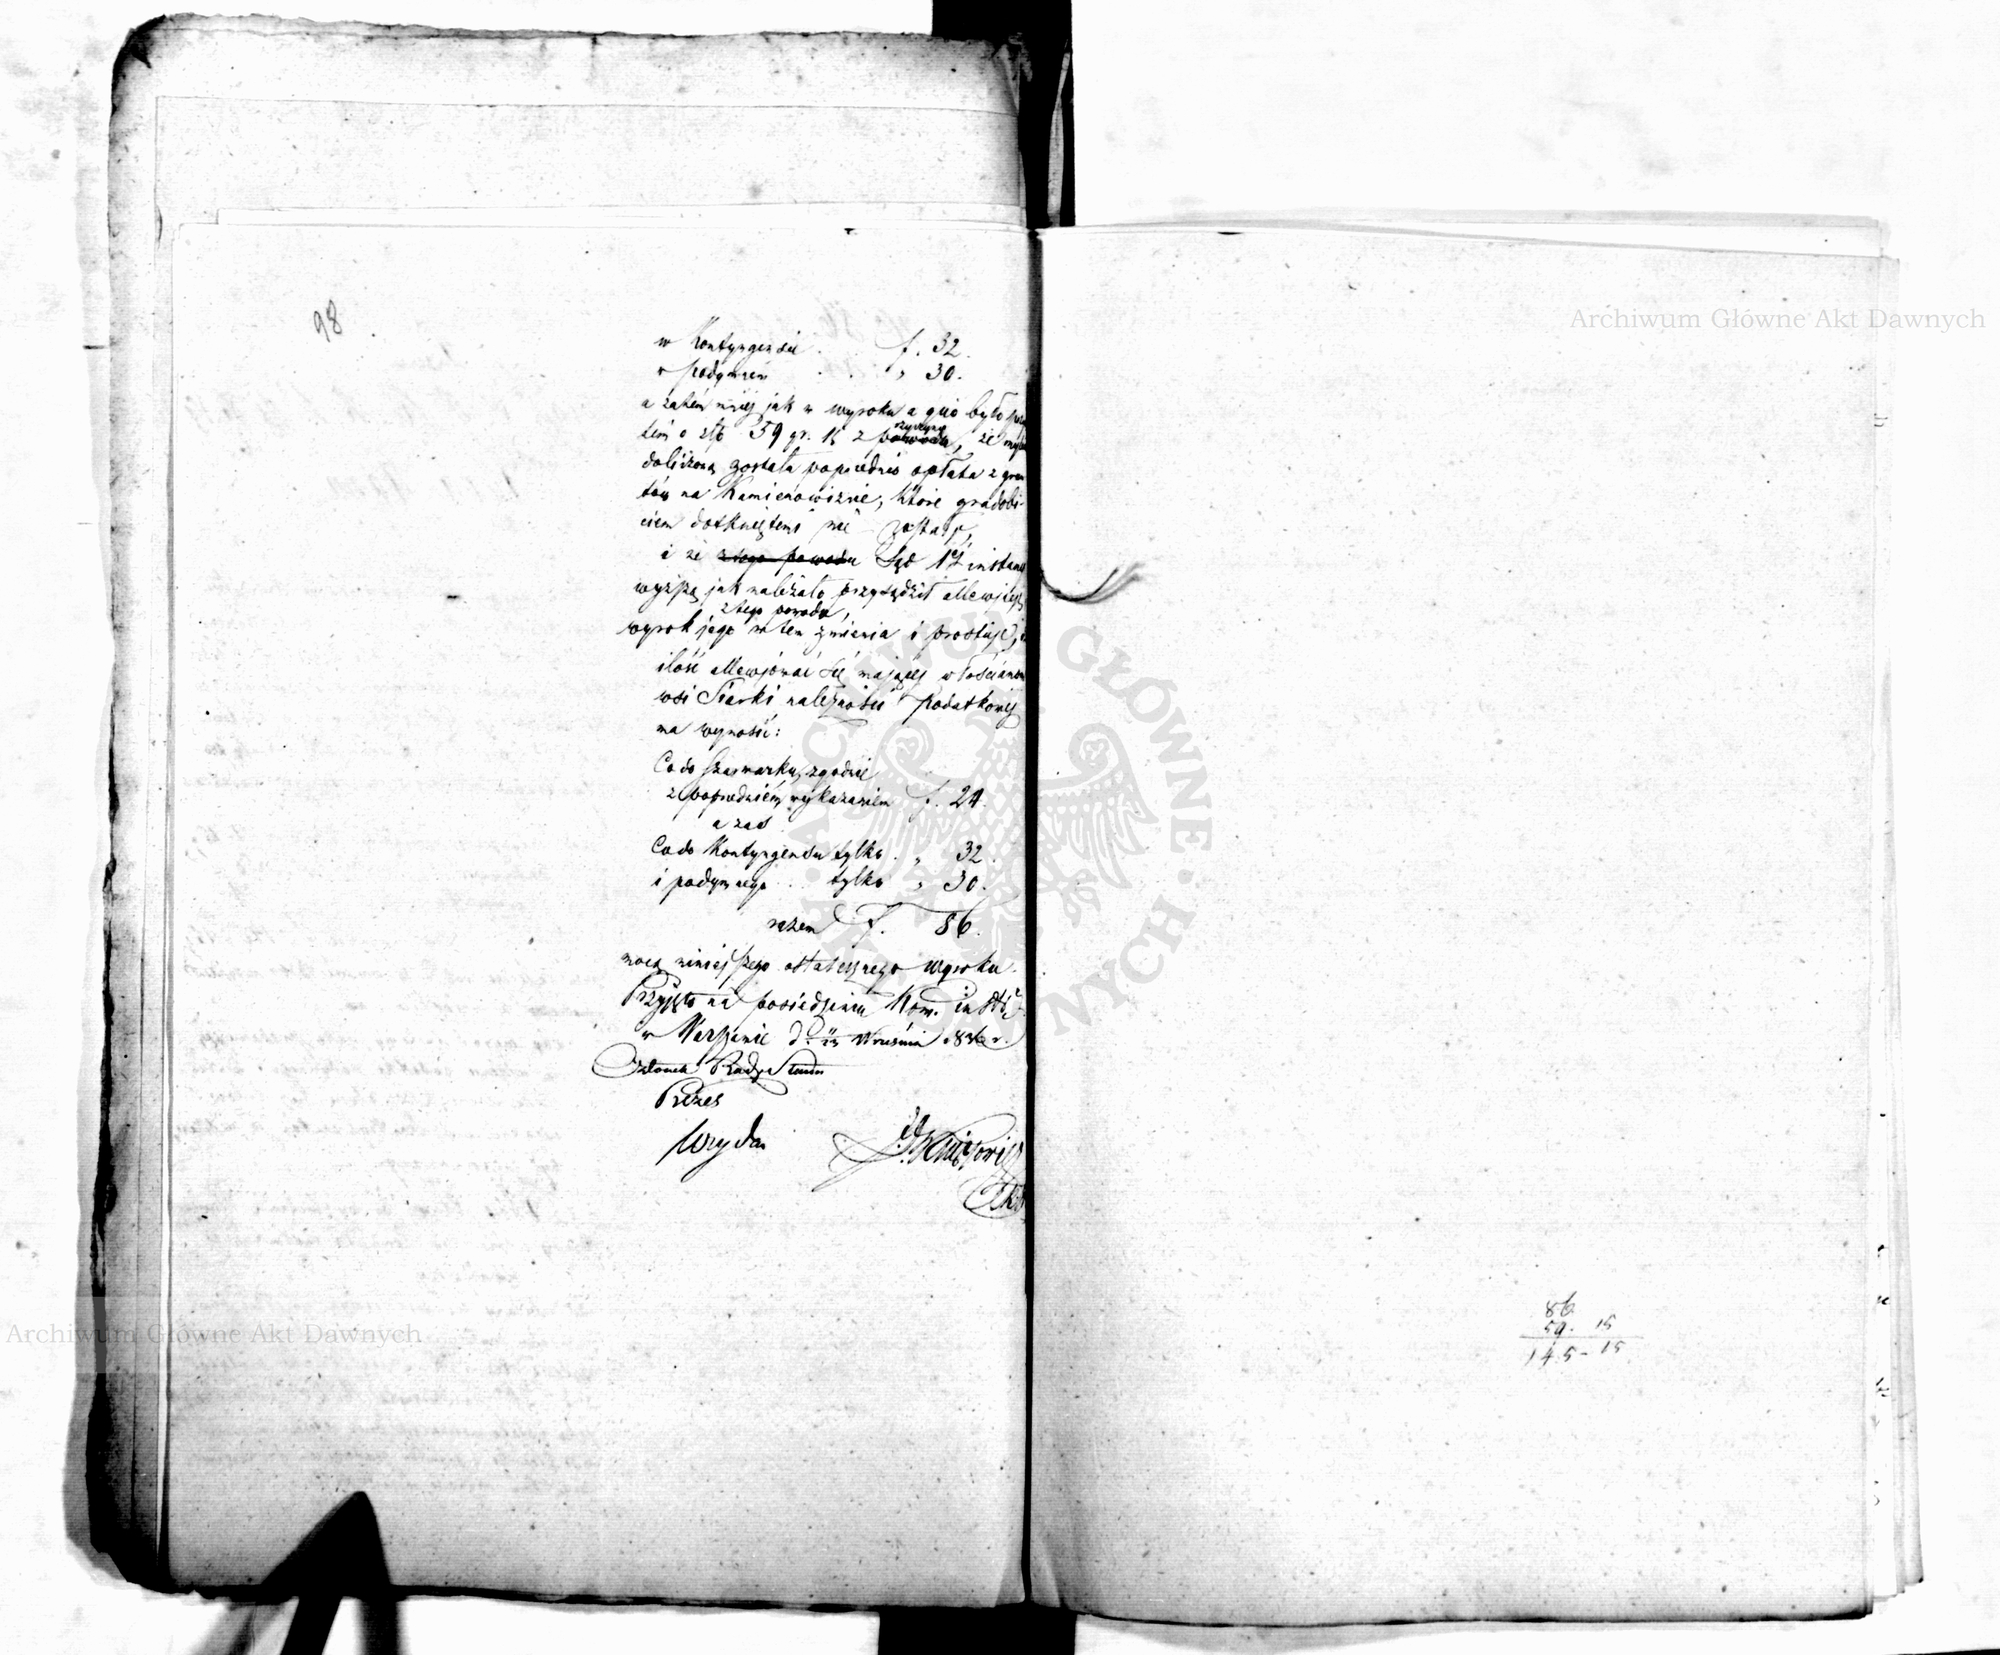 98
w Kontyngensie . . f. 32.
w podymnem . . „ 30.
a zatem mniej jak w wyroku a quo było
tem o złp 59 gr. 15 z przyczyny powodu, że
doliczoną została poprzednio opłata z grun
tów na Kamienowiznie, które gradobi-
ciem dotkniętemi nie zostały,
i że z tego powodu Sąd 1éj instancyi
wyższą jak należało przysądził allewjacyą
z tego powodu,
wyrok jego w tem zmienia i prostuje,
ilość allewjować się mającej włościanom
wsi Siarki należności podatkowej
ma wynosić:
Co do Szarwarku, zgodnie
z poprzedniem wykazaniem f. 24.
a zaś
Co do Kontyngensu tylko . „ 32.
i podymnego . . tylko „ 30.
razem f. 86.
mocą niniejszego ostatecznego wyroku.
Przyjęto na posiedzeniu Kom.
w Warszawie d. Września
Członek Rady Stanu
Prezes
86.
59. 15
145 - 15
Archiwum Główne Akt Dawnych
Archiwum Główne Akt Dawnych